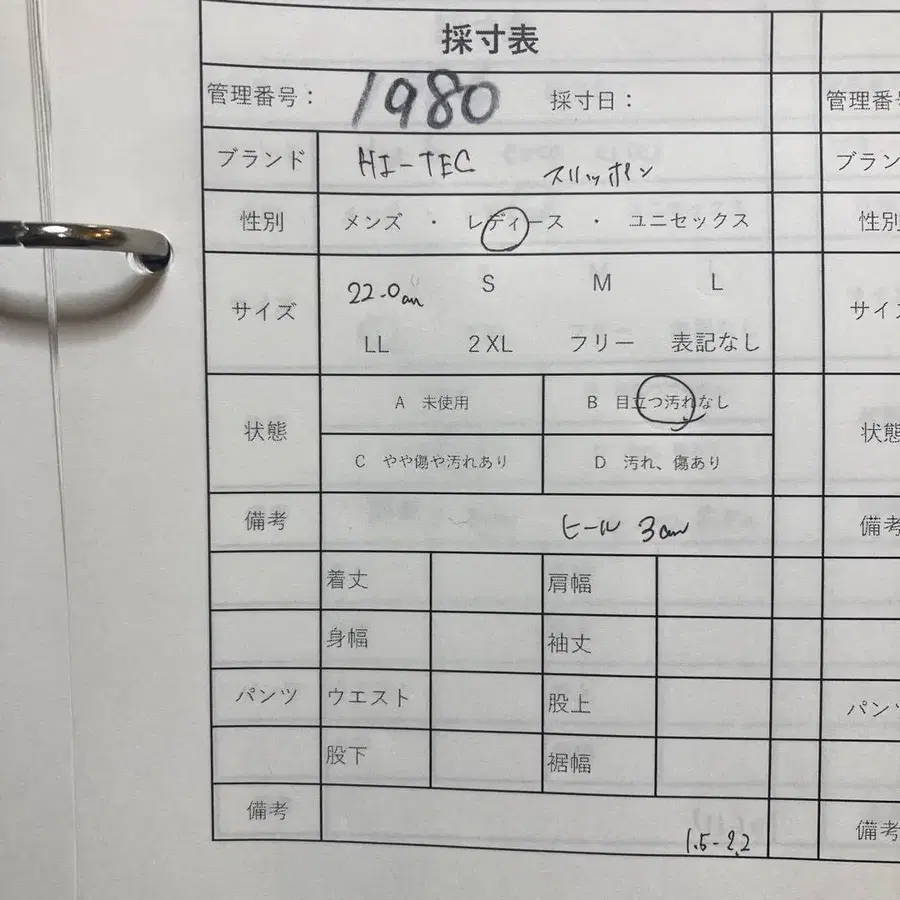 採寸表
管理番号： 1980 採寸日： 管理番号
ブランド HI-TEC スリッポン ブラン
性別 メンズ ・ レディース ・ ユニセックス 性別
サイズ 22.0cm S M L サイズ
LL 2XL フリー 表記なし
状態 A 未使用 B 目立つ汚れなし 状態
C やや傷や汚れあり D 汚れ、傷あり
備考 ヒール 3cm 備考
着丈 肩幅
身幅 袖丈
パンツ ウエスト 股上 パンツ
股下 裾幅
備考 1.5-2.2 備考